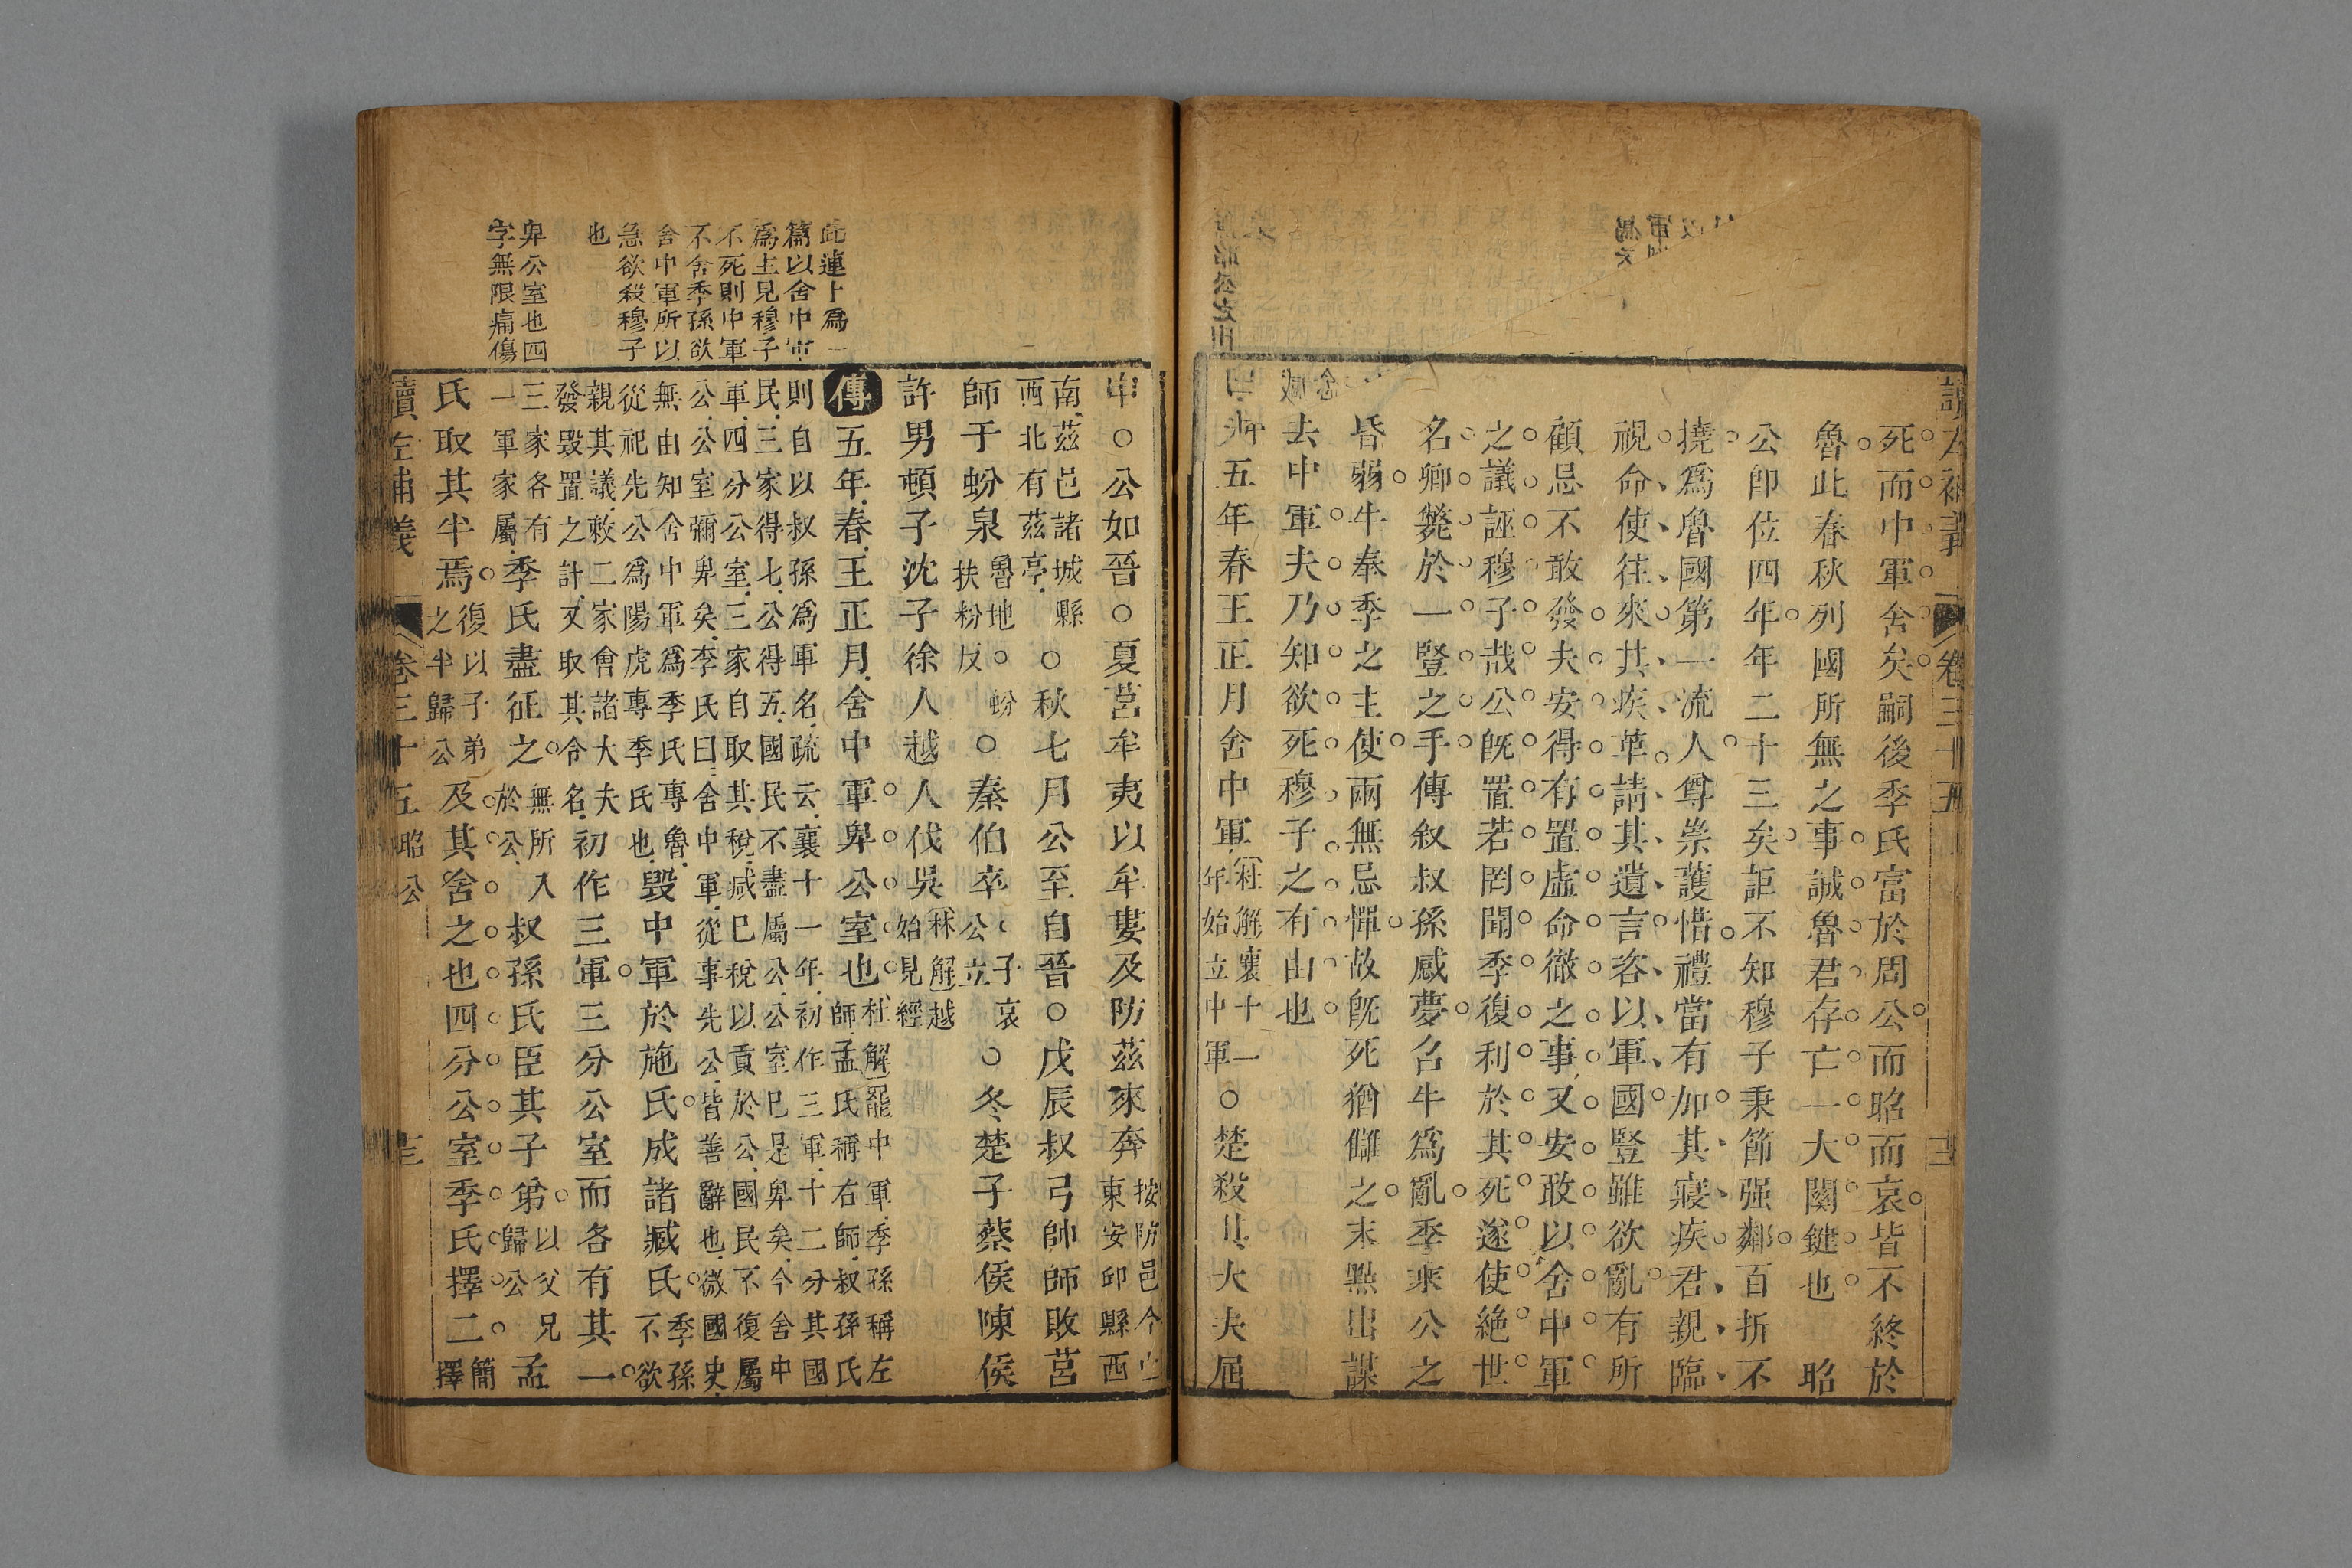 讀左補義 卷三十五
死而中軍舍矣嗣後季氏富於周公而昭而哀皆不終於
魯此春秋列國所無之事誠魯君存亡一大關鍵也 昭
公卽位四年年二十三矣詎不知穆子秉節强鄰百折不
撓爲魯國第一流人尊崇護惜禮當有加其寢疾君親臨
視命使往來其疾革請其遺言咨以軍國豎雖欲亂有所
顧忌不敢發夫安得有置虛命徹之事又安敢以舍中軍
之議誣穆子哉公旣置若罔聞季復利於其死遂使絶世
名卿斃於一豎之手傳叙叔孫感夢召牛爲亂季乘公之
昏弱牛奉季之主使兩無忌憚故旣死猶讎之末㸃出謀
去中軍夫乃知欲死穆子之有由也
五年春王正月舍中軍
杜解襄十一
年始立中軍
○楚殺其大夫屈
申○公如晉○夏莒牟夷以牟婁及防茲來奔
按防邑今
東安邱縣西
南茲邑諸城縣
西北有茲亭
○秋七月公至自晉○戊辰叔弓帥師敗莒
師于蚡泉
魯地○蚡
扶粉反
○秦伯卒
○冬楚子蔡侯陳侯
許男頓子沈子徐人越人伐吳
林解越
始見經
傳五年春王正月舍中軍卑公室也
杜解罷中軍季孫稱左
師孟氏稱右師叔孫氏
則自以叔孫爲軍名疏云襄十一年初作三軍十二分其國
民三家得七公得五國民不盡屬公公室已是卑矣今舍中
軍四分公室三家自取其稅減已稅以貢於公國民不復屬
公公室彌卑矣季氏曰舍中軍從事先公皆善辭也微國史
無由知舍中軍爲季氏專魯
從祀先公爲陽虎專季氏也
毀中軍於施氏成諸臧氏
季孫
不欲
親其議敕二家會諸大夫
發毀置之計又取其令名
初作三軍三分公室而各有其一
三家各有
一軍家屬
季氏盡征之
無所入
於公
叔孫氏臣其子弟
以父兄
歸公
孟
氏取其半焉
復以子弟
之半歸公
及其舍之也四分公室季氏擇二
簡
擇
讀左補義 卷三十五 昭公
此連上爲一
篇以舍中軍
爲主見穆子
不死則中軍
不舍季孫欲
舍中軍所以
急欲殺穆子
也
卑公室也四
字無限痛傷